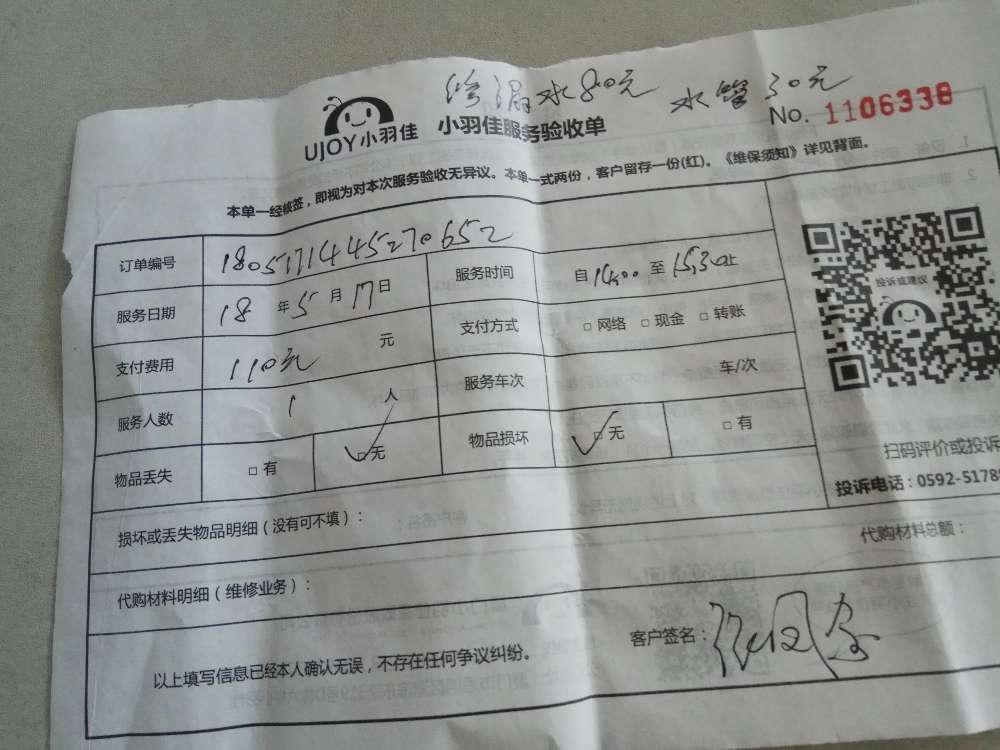 修漏水80元 水管30元
UJOY小羽佳 小羽佳服务验收单 No. 1106338
本单一经核签，即视为对本次服务验收无异议。本单一式两份，客户留存一份(红)。《维保须知》详见背面。
订单编号 1805171445270652 服务时间 自14:00至15:30止
服务日期 18年5月17日 支付方式 □网络 □现金 □转账
支付费用 110元 元 服务车次 车/次
服务人数 1 人
物品丢失 □有 □无 物品损坏 □无 □有
投诉或建议
扫码评价或投诉
投诉电话：0592-5178
损坏或丢失物品明细（没有可不填）：
代购材料明细（维修业务）： 代购材料总额：
以上填写信息已经本人确认无误，不存在任何争议纠纷。 客户签名：